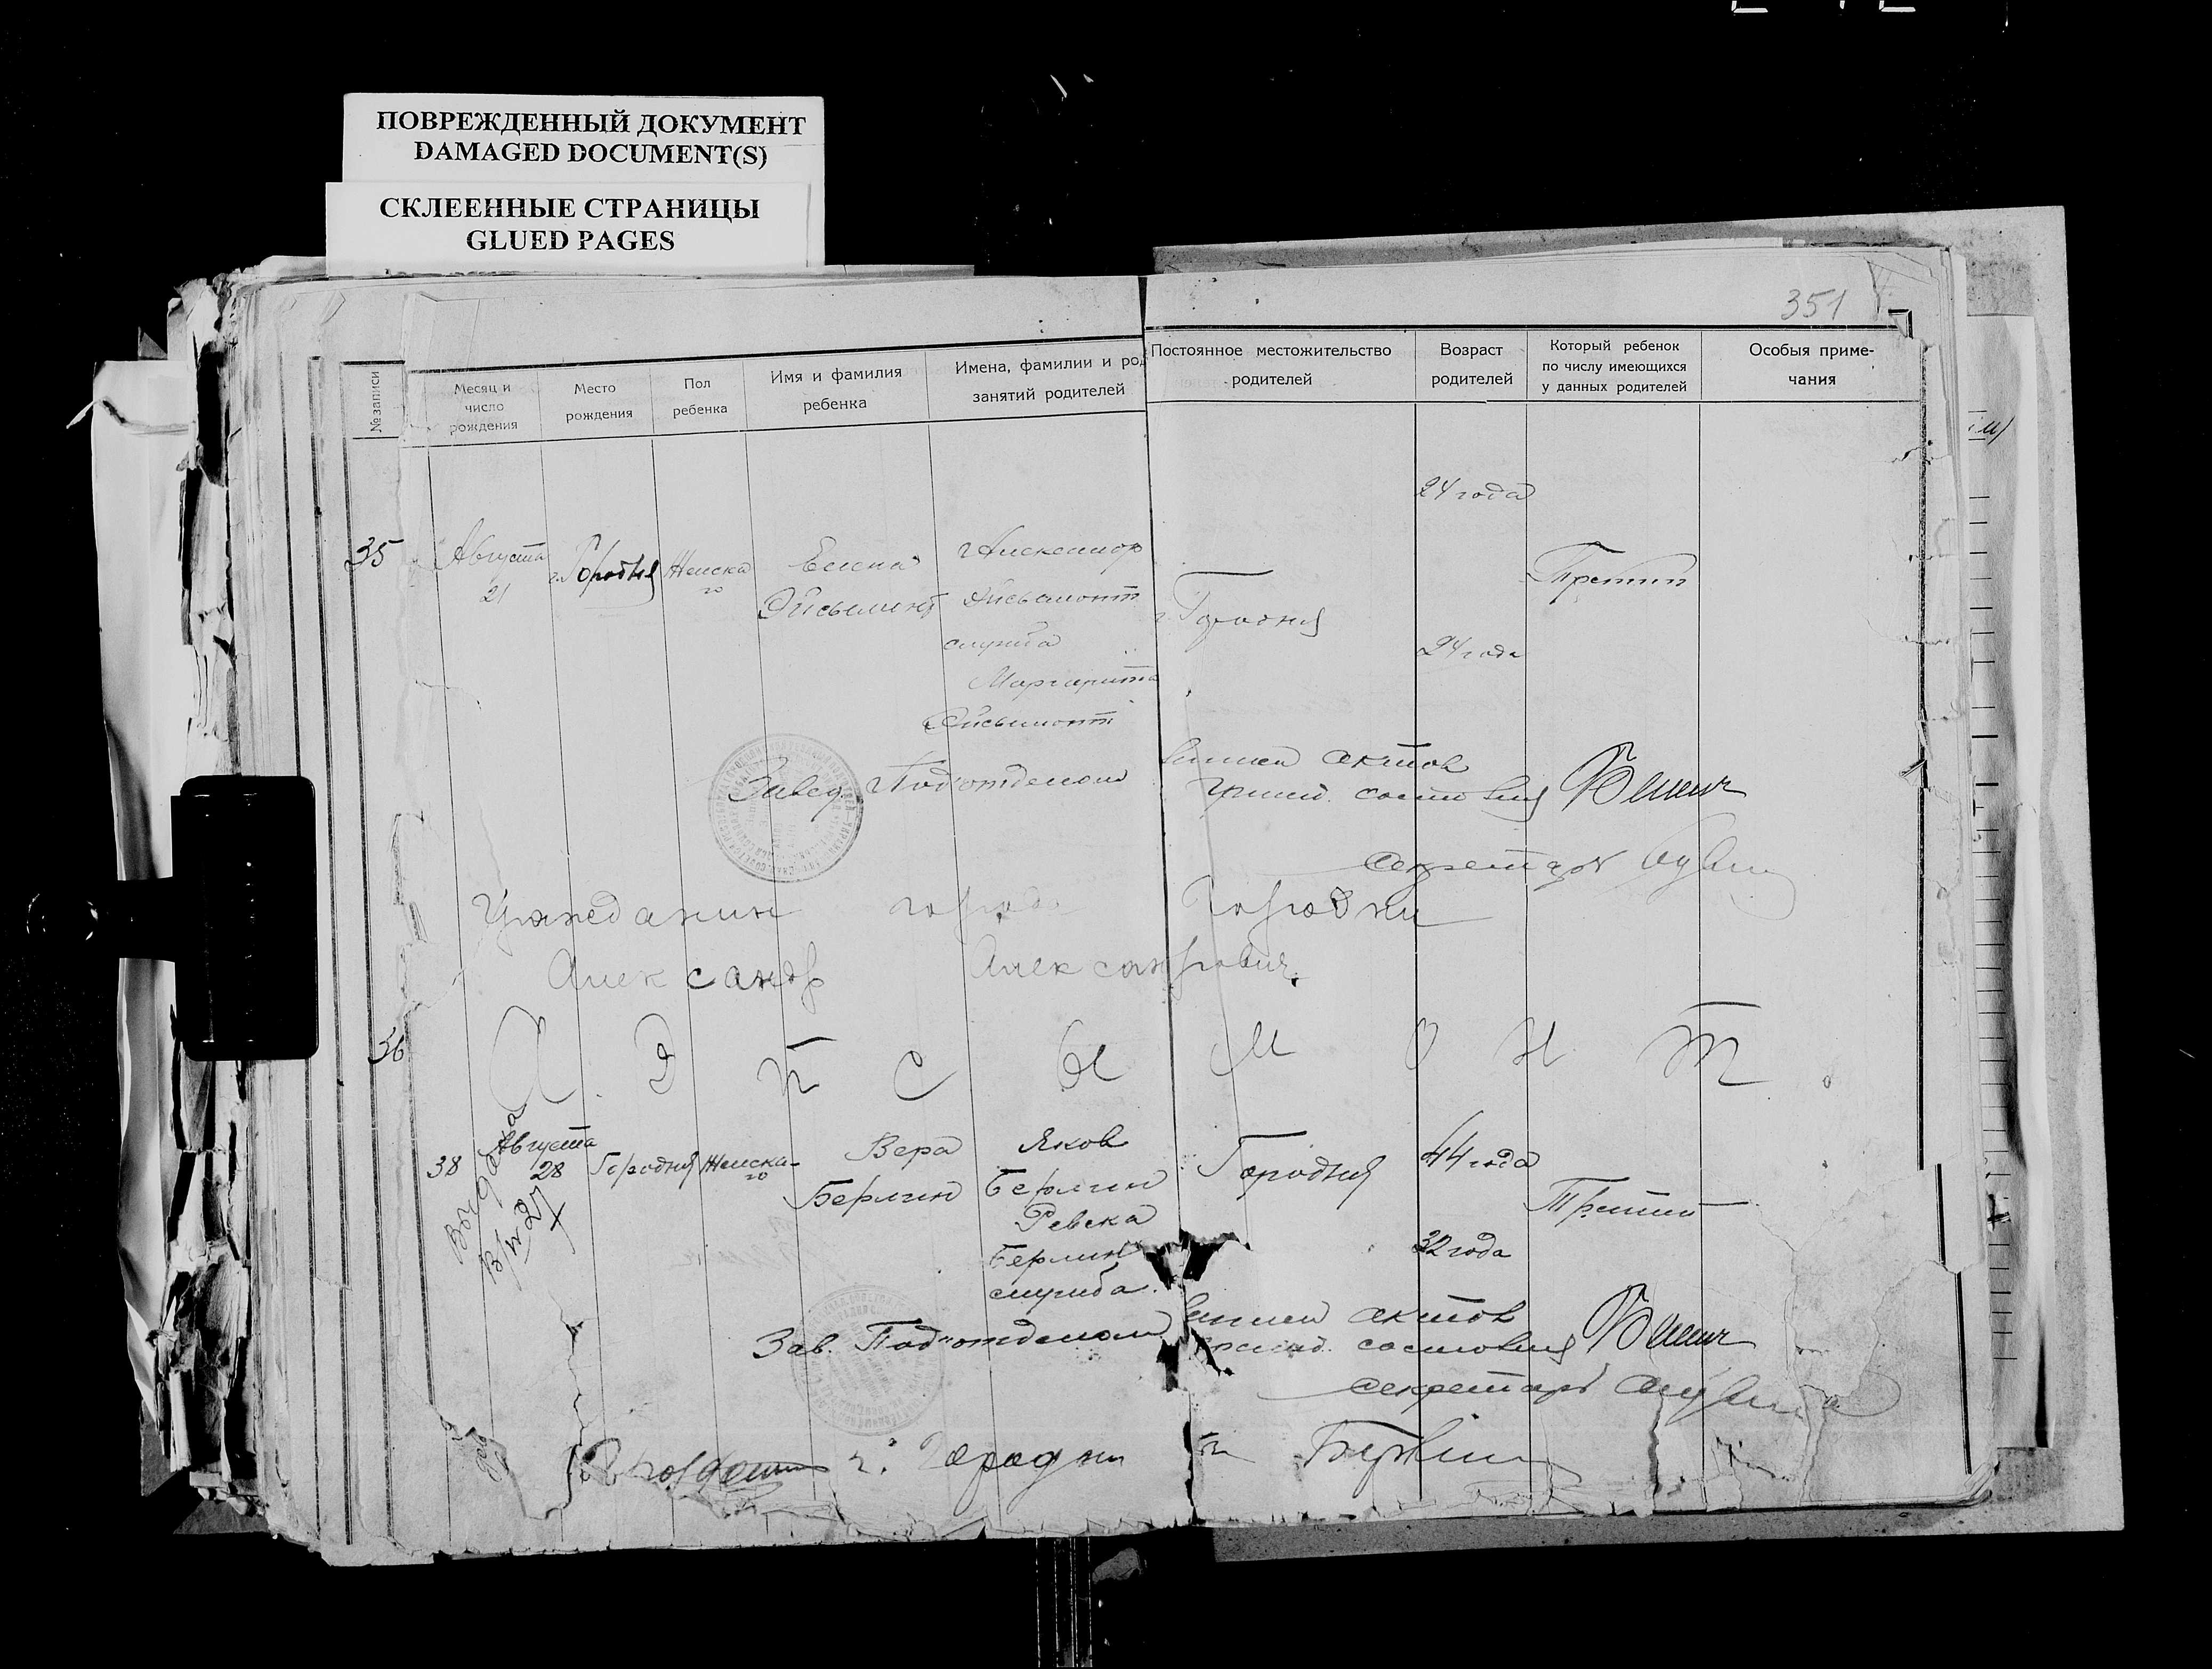 ПОВРЕЖДЕННЫЙ ДОКУМЕНТ
DAMAGED DOCUMENT(S)
СКЛЕЕННЫЕ СТРАНИЦЫ
GLUED PAGES
351
№ записи
Месяц и число рождения
Место рождения
Пол ребенка
Имя и фамилия ребенка
Имена, фамилии и род занятий родителей
Постоянное местожительство родителей
Возраст родителей
Который ребенок по числу имеющихся у данных родителей
Особыя приме-
чания
24 года
35
Августа
21
г. Городня
Женска
го
Елена
Эйсымонт
Александр
Эйсымонт
служба
Маргарита
Эйсымонт
г. Городня
24 года
Третий
Завед. Подотделом
записи актов
гражд. состояния
секретарь
Гражданин города Городни
Александр Александрович
Э Й С Ы М О Н Т
36
38
Августа
28
Городня
Женска-
го
Вера
Берлин
Яков
Берлин
Ревека
Берлин
служба.
Городня
44 года
32 года
Третий
Выдана
Зав. Под"отделом
записи актов
гражд. состояния
секретарь
г. Городни